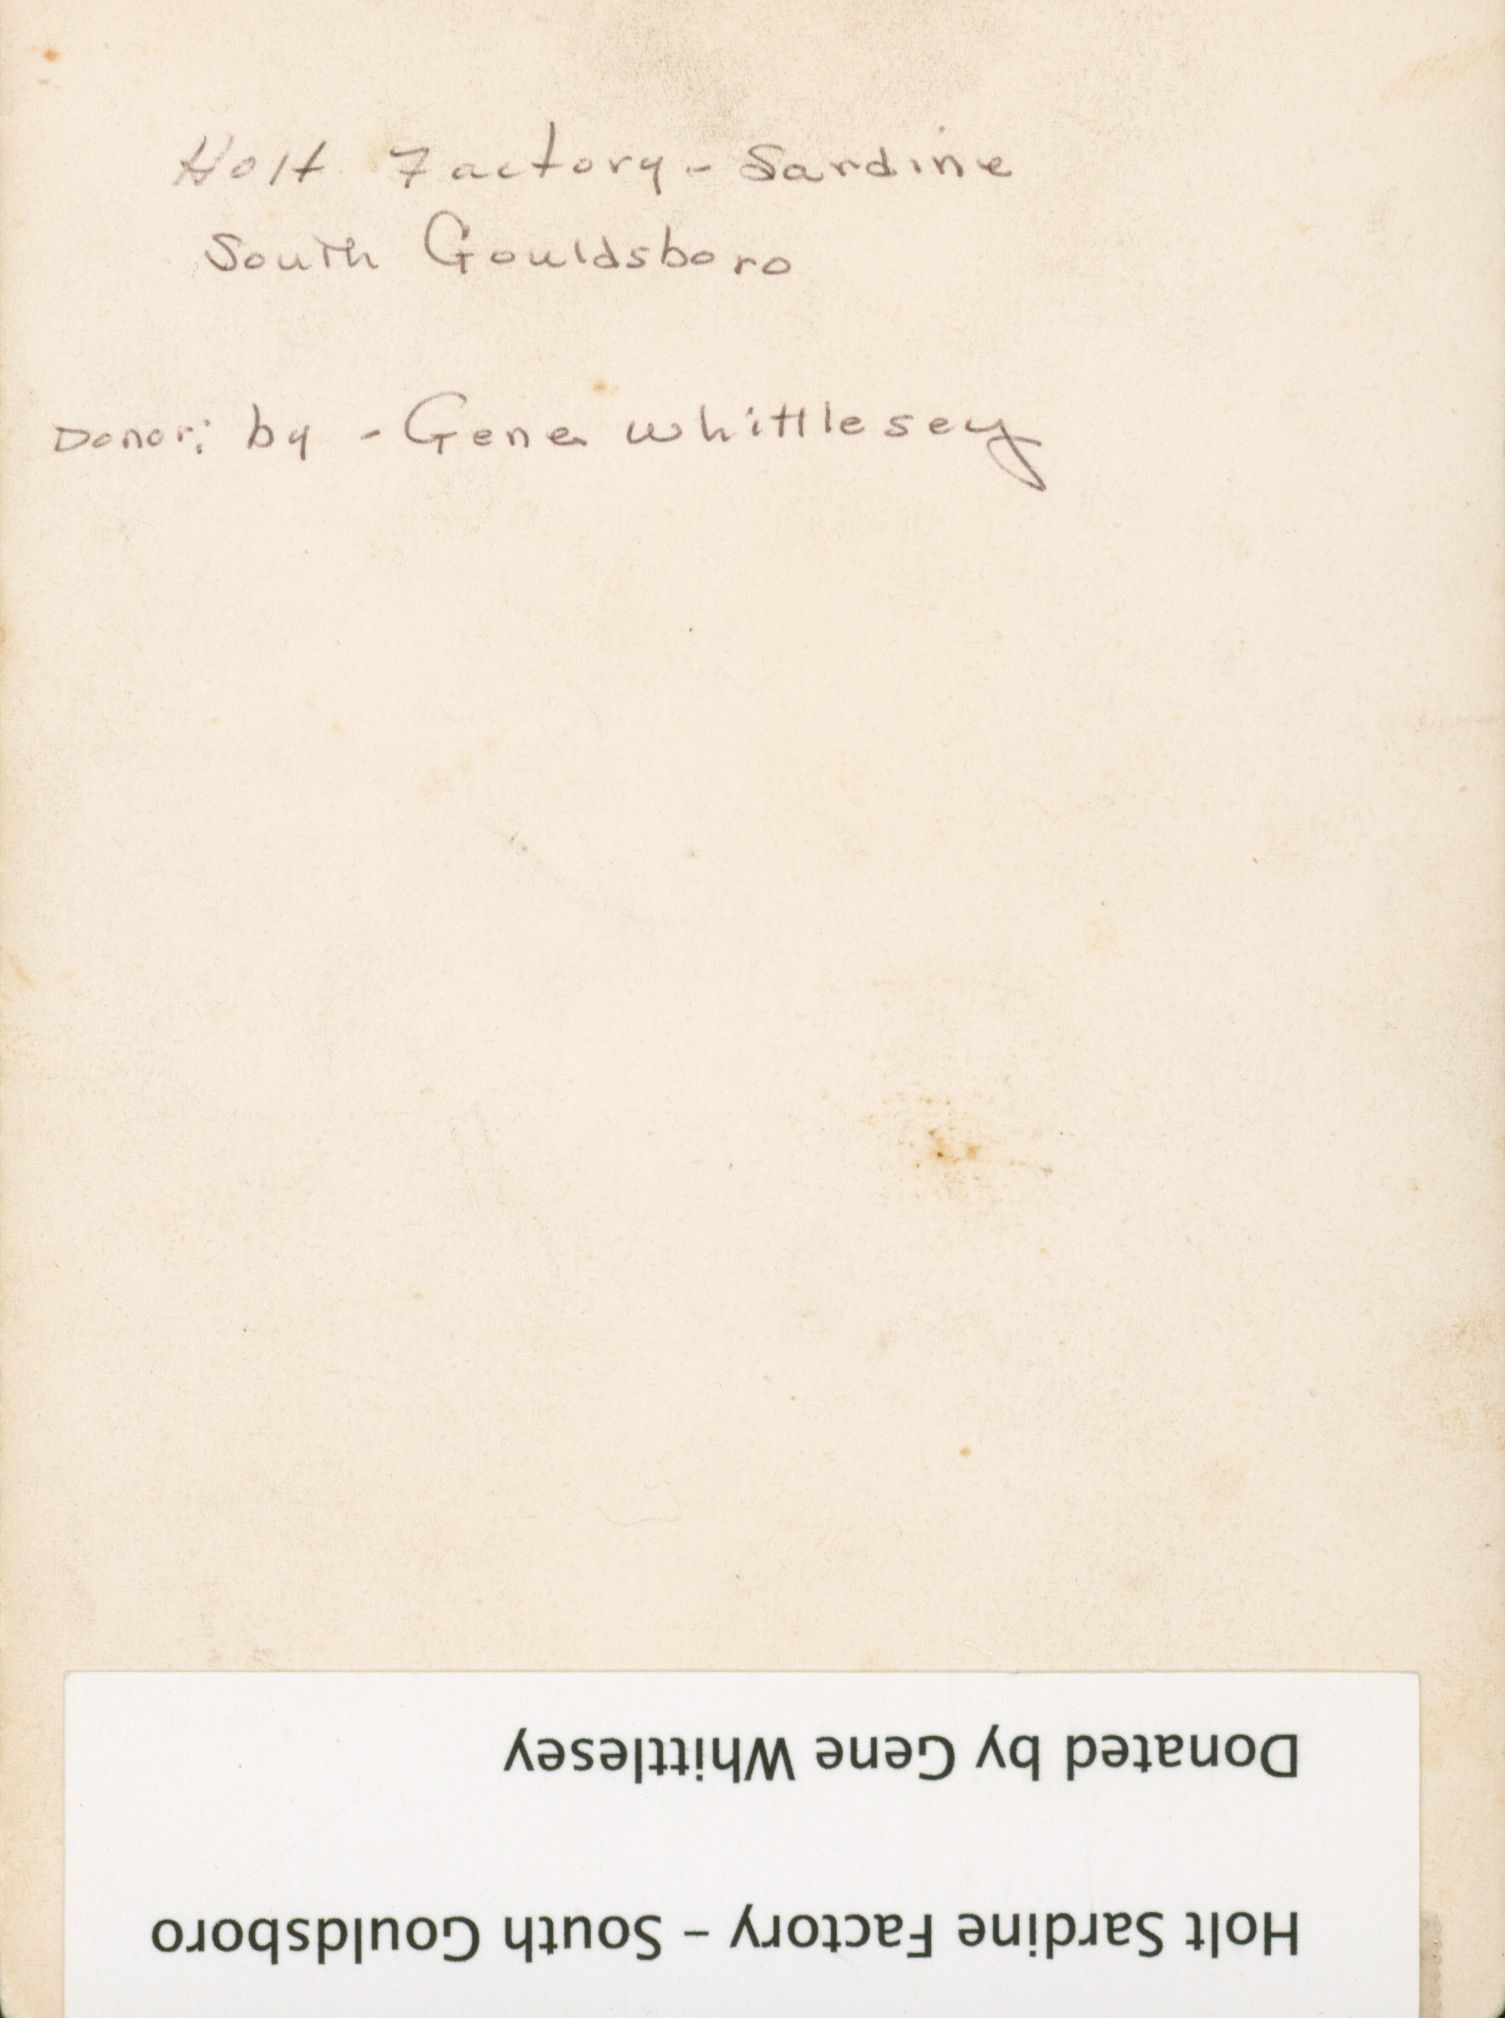 Holt Factory - Sardine
South Gouldsboro
Donor: by - Gene Whittlesey
Holt Sardine Factory – South Gouldsboro
Donated by Gene Whittlesey